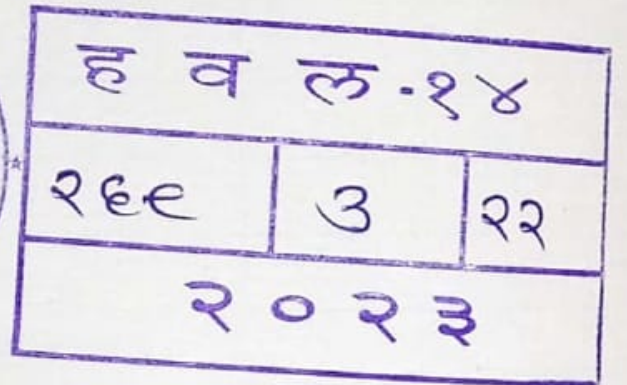 ह व ल -१४
२६९ ३ २२
२०२३